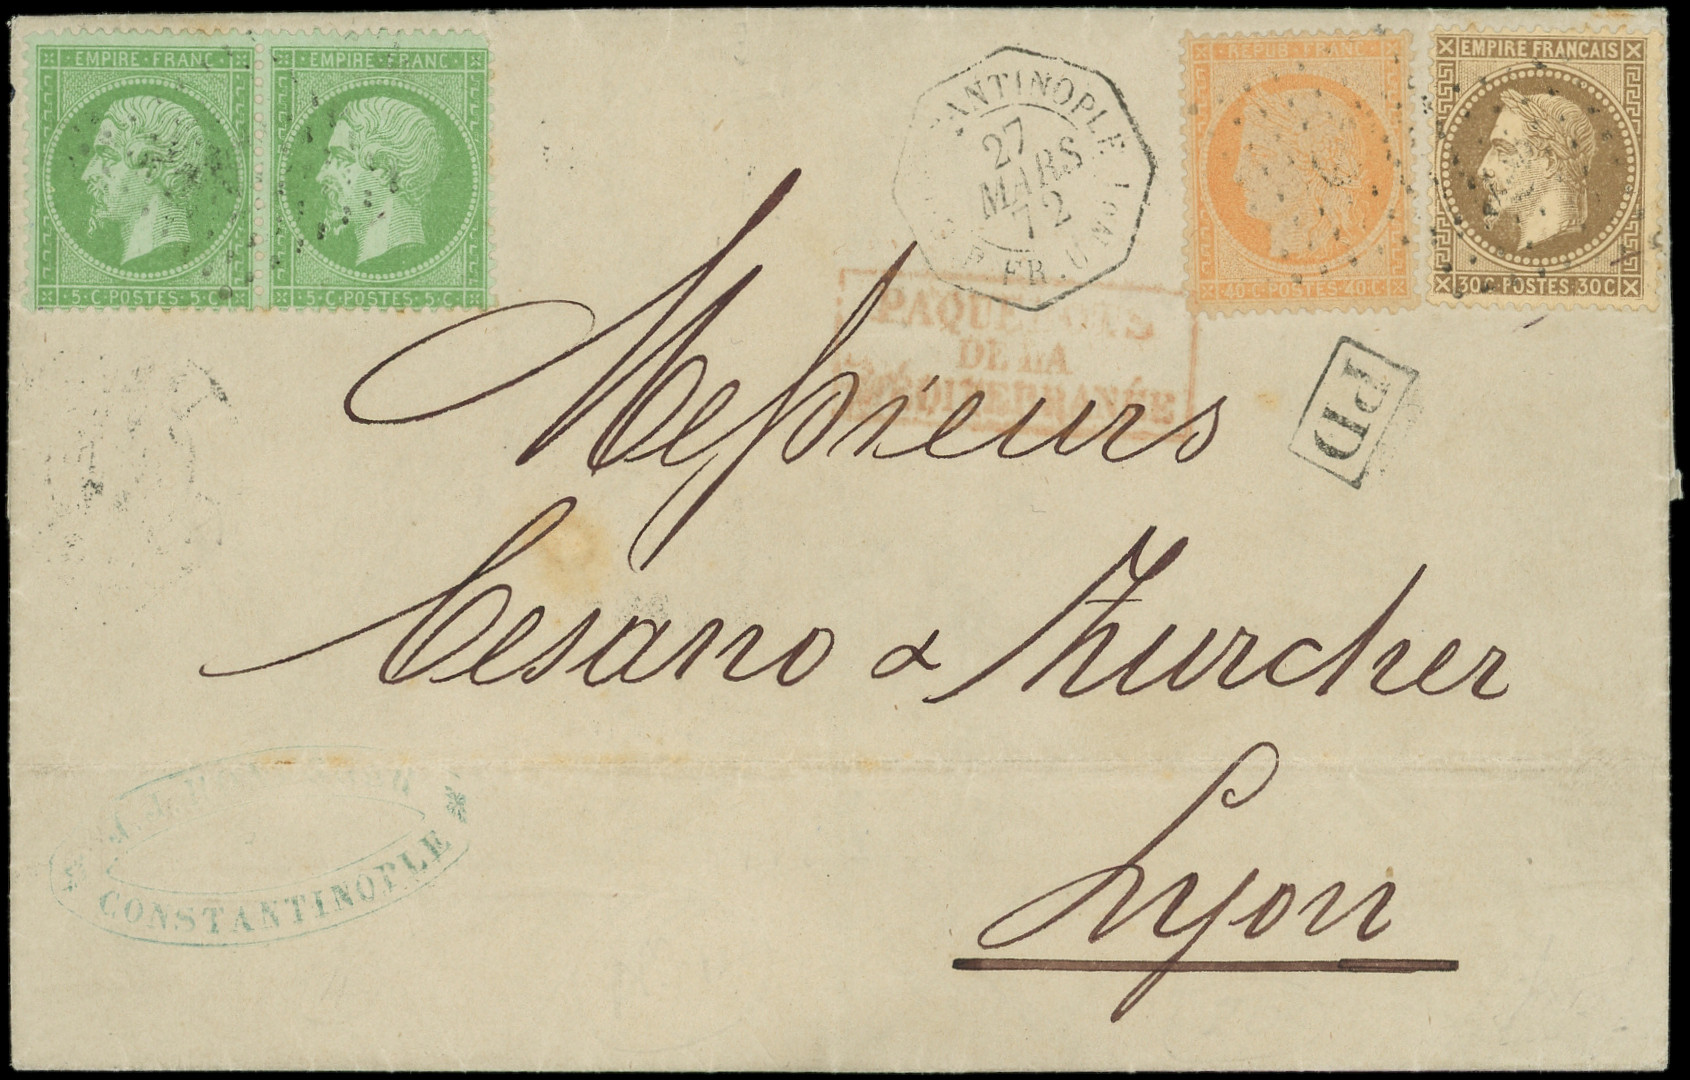 EMPIRE · FRANC
5 · C · POSTES · 5 C
EMPIRE · FRANC
5 · C · POSTES · 5 C
ANTINOPLE
27
MARS
72
FR.
REPUB · FRANC
40 · C · POSTES · 40 · C
EMPIRE FRANCAIS
30 C · POSTES · 30 C
PAQUEBOTS
DE LA
MÉDITERRANÉE
PD
Messieurs
Cesano & Zurcher
Lyon
CONSTANTINOPLE